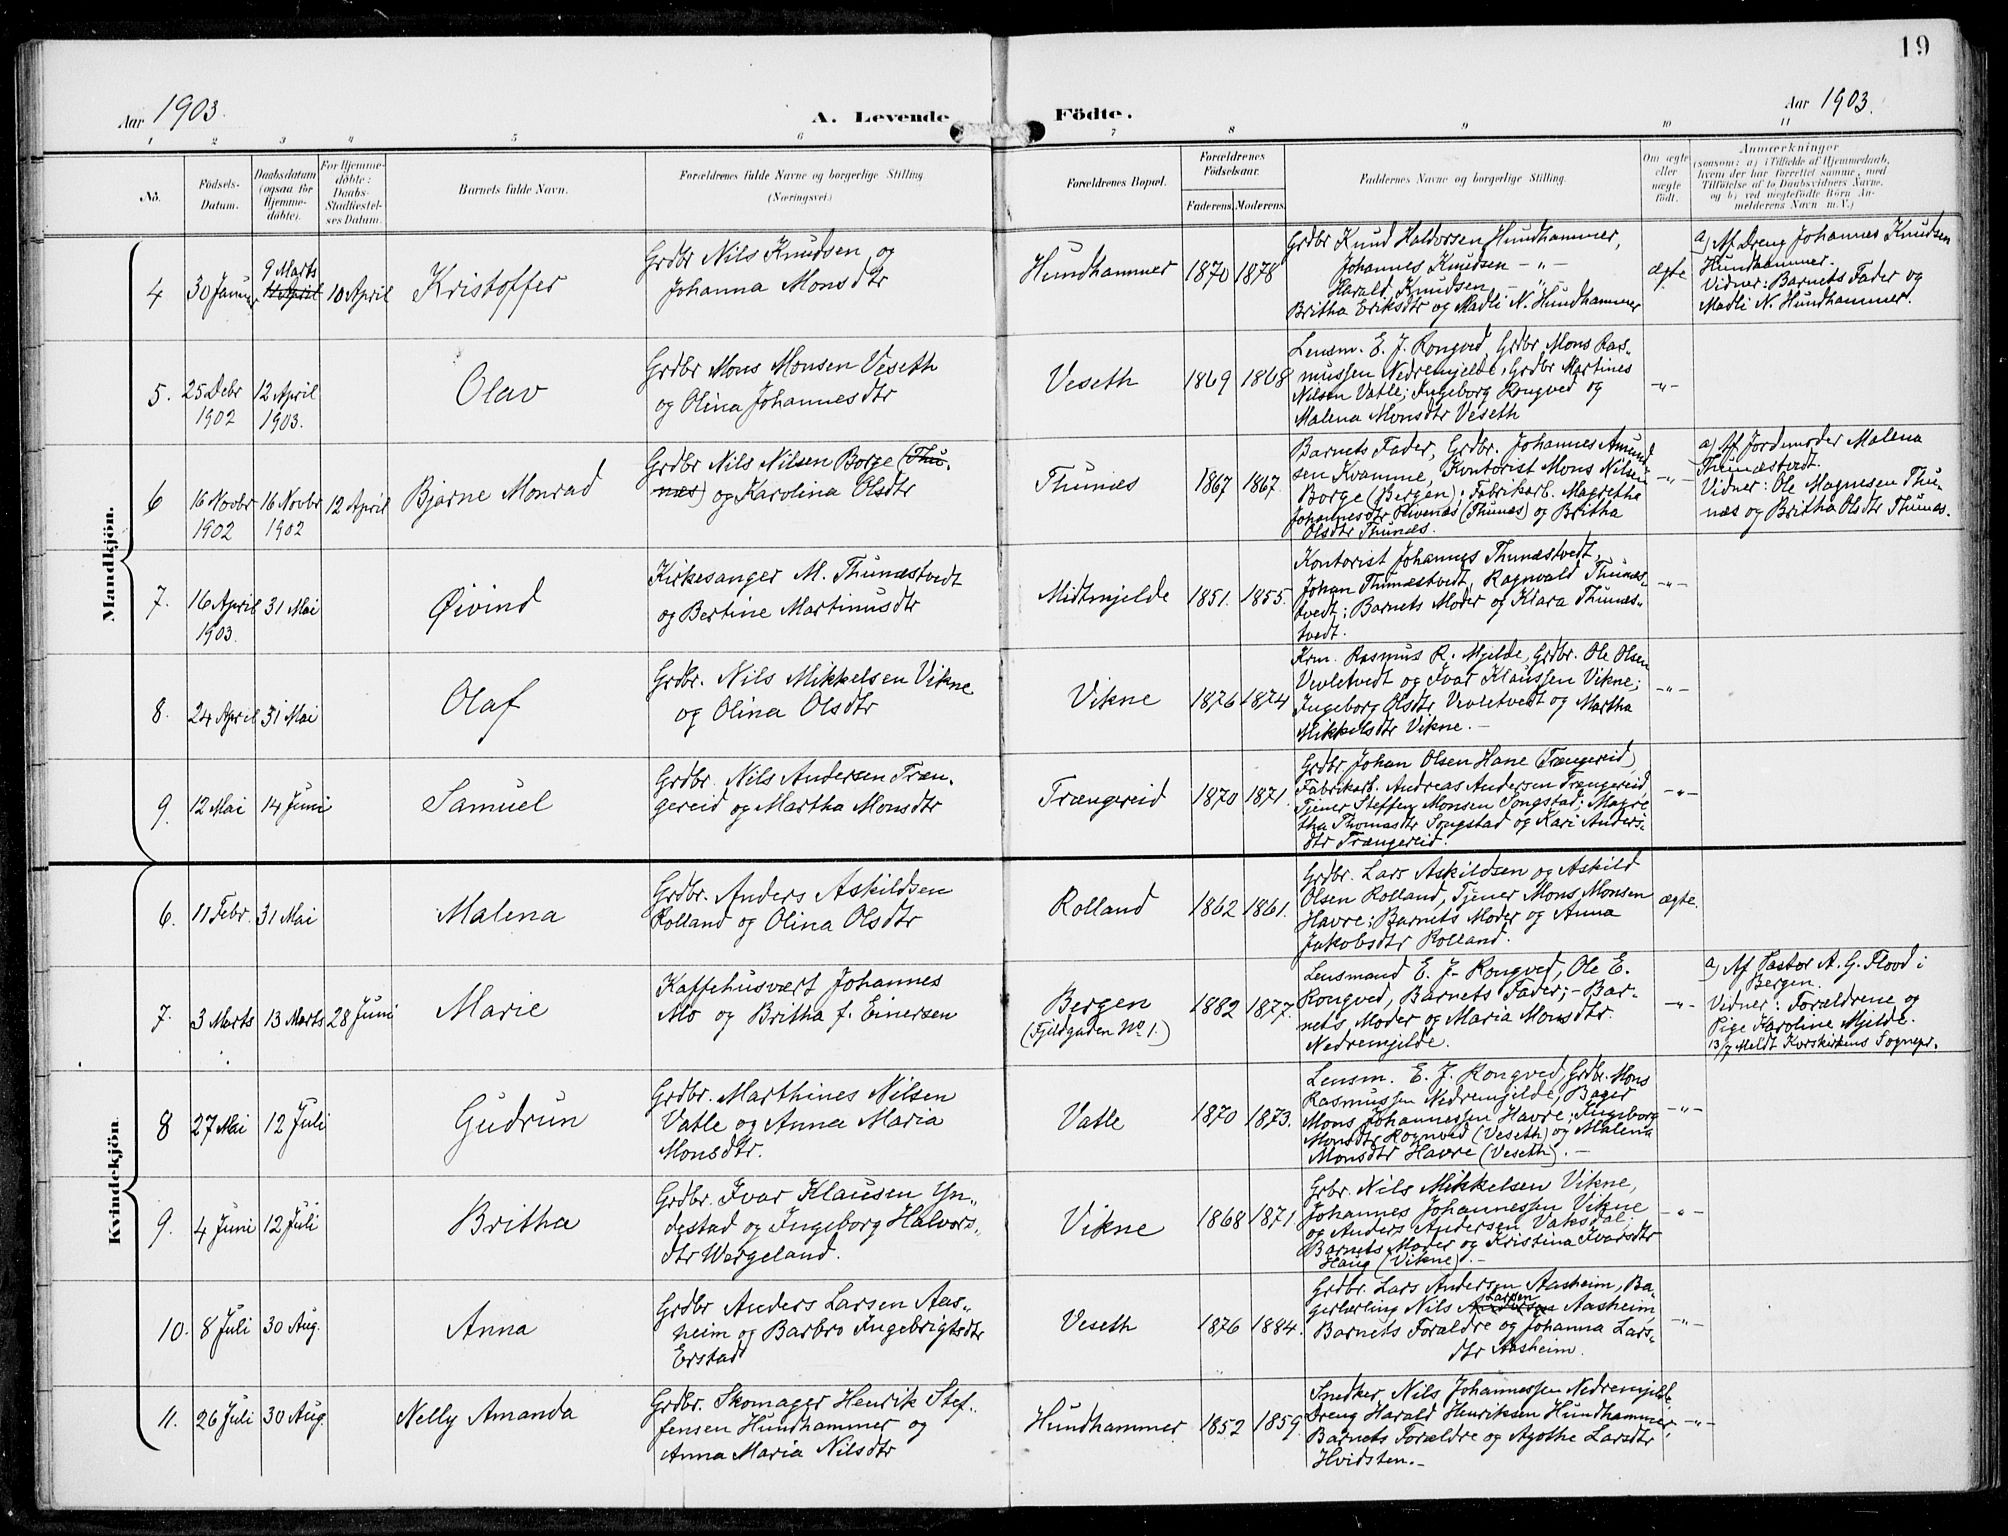 19
Aar 1903.
A. Levende
Födte.
Aar 1903.
1 2 3 4 5 6 7 8 9 10 11
No.
Födsels-
Datum.
Daabsdatum
(ogsaa for
Hjemme-
døbte).
For Hjemme-
döbte:
Daabs-
Stadfæstel-
ses Datum.
Barnets fulde Navn.
Forældrenes fulde Navne og borgerlige Stilling
(Næringsvei.)
Forældrenes Bopæl.
Forældrenes
Födselsaar.
Faderens. Moderens.
Faddernes Navne og borgerlige Stilling.
Om ægte
eller
uægte
født.
Anmærkninger
(saasom: a) i Tilfælde af Hjemmedaab,
hvem der har forrettet samme, med
Tilföielse af to Daabsvidners Navne,
og b) ved uægtefødte Börn An-
melderens Navn m.V.)
Mandkjön.
4
30 Januar
9 Marts
11 April
10 April
Kristoffer
Grdbr Nils Knudsen og
Johanna Monsdtr
Hundhammer
1870
1878
Grdbr Knud Haldorsen Hundhammer,
Johannes Knudsen -"-
Harald Knudsen -"-
Britha Eriksdtr og Madli N. Hundhammer
ægte
a) Af Dreng Johannes Knudsen
Hundhammer.
Vidner: Barnets Fader og
Madli N. Hundhammer.
5.
25 Debr
1902
12 April
1903.
Olav
Grdbr Mons Monsen Veseth
og Olina Johannesdtr
Veseth
1869
1868
Lensm. E. J. Rongved, Grdbr Mons Ras-
mussen Nedremjelde, Grdbr Martines
Nilsen Vatle; Ingeborg Rongved og
Malena Monsdtr Veseth
-"-
6
16 Novbr
1902
16 Novbr
1902
12 April
Bjarne Monrad
Grdbr Nils Nilsen Borge (Thu-
næs) og Karolina Olsdtr
Thunæs
1867
1867.
Barnets Fader, Grdbr. Johannes Amund
sen Kvamme, Kontorist Mons Nilsen
Borge (Bergen); Fabrikarb. Magrethe
Johannesdtr (Thunæs) og Britha
Olsdtr Thunæs.
-"-
a) Af Jordemoder Malena
Thunæstvedt.
Vidner: Ole Magnesen Thu-
næs og Britha Olsdtr Thunæs.
7.
16 April
1903.
31 Mai
Øivind
Kirkesanger M. Thunæstvedt
og Bertine Martinusdtr
Midtmjelde
1851.
1855.
Kontorist Johannes Thunæstvedt,
Johan Thunæstvedt, Ragnvald Thunæs-
tvedt; Barnets Moder og Klara Thunæs-
tvedt.
-"-
8.
24 April
31 Mai
Olaf
Grdbr. Nils Mikkelsen Vikne
og Olina Olsdtr
Vikne
1876
1874
Krm. Rasmus R. Mjelde, Grdbr. Ole Olsen
Vevletvedt og Ivar Klaussen Vikne;
Ingeborg Olsdtr Vevletvedt og Martha
Mikkelsdtr Vikne.-
-"-
9.
12 Mai
14 Juni
Samuel
Grdbr. Nils Andersen Træn-
gereid og Martha Monsdtr
Trængereid
1870
1871.
Grdbr Johan Olsen Hane (Trængereid)
Fabrikarb. Andreas Andersen Trængereid
Tjener Steffen Monsen Songstad; Magre
tha Thomasdtr Songstad og Kari Anders-
dtr Trængereid.
-"-
Kvindekjön.
6.
11 Febr.
31 Mai
Malena
Grdbr. Anders Askildsen
Rolland og Olina Olsdtr
Rolland
1862
1861.
Grdbr. Lars Askildsen og Askild
Olsen Rolland, Tjener Mons Monsen
Havre; Barnets Moder og Anna
Jakobsdtr Rolland.
ægte.
7.
3 Marts
13 Marts
28 Juni
Marie
Kaffehusvært Johannes
Mo og Britha f. Einersen
Bergen
(Fjeldgaden No 1.)
1882
1877.
Lensmand E. J. Rongved, Ole E.
Rongved, Barnets Fader;- Bar-
nets Moder og Maria Monsdtr.
Nedremjelde.
-"-
a) Af Pastor A. G. Flood i
Bergen.
Vidner: Forældrene og
Pige Karoline Mjelde.
13/7 Meldt Korskirkens Sognepr.
8
27 Mai
12 Juli
Gudrun
Grdbr. Marthines Nilsen
Vatle og Anna Maria
Monsdtr.
Vatle
1870
1873.
Lensm. E. J. Rongved, Grdbr. Mons
Rasmussen Nedremjelde, Bager
Mons Johannessen Havre; Ingeborg
Monsdtr Rognved (Veseth) og Malena
Monsdtr Havre (Veseth).-
-"-
9.
4 Juni
12 Juli
Britha
Grdbr. Ivar Klausen Yn-
destad og Ingeborg Halvors-
dtr Wergeland.
Vikne
1868
1871
Grbr. Nils Mikkelsen Vikne,
Johannes Johannessen Vikne
og Anders Andersen Vaksdal;
Barnets Moder og Kristina Ivarsdtr
Haug (Vikne).-
-"-
10.
8 Juli
30 Aug.
Anna
Grdbr Anders Larsen Aas-
heim og Barbro Ingebrigtsdtr
Erstad
Veseth
1876
1884.
Grdbr. Lars Andersen Aasheim, Ba-
gerlærling Nils Andersen Larsen Aasheim,
Barnets Forældre og Johanna Lars-
dtr Aasheim.
-"-
11.
26 Juli
30 Aug.
Nelly Amanda
Grdbr. Skomager Henrik Stef-
fensen Hundhammer og
Anna Maria Nilsdtr
Hundhammer
1852
1859.
Snedker Nils Johannessen Nedremjelde,
Dreng Harald Henriksen Hundhammer,
Barnets Forældre og Agothe Larsdtr
Hvidsten.-
-"-